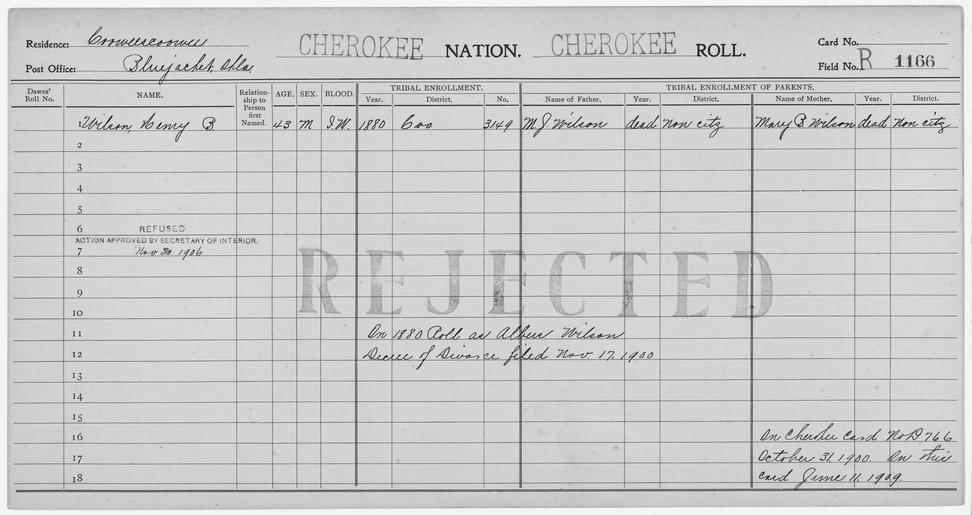 Residence: Cooweescoowee
CHEROKEE NATION. CHEROKEE ROLL.
Card No.
Post Office: Bluejacket, Okla.
Field No. R 1166
Dawes' Roll No. NAME. Relationship to Person first Named. AGE. SEX. BLOOD. TRIBAL ENROLLMENT. TRIBAL ENROLLMENT OF PARENTS.
Year. District. No. Name of Father. Year. District. Name of Mother. Year. District.
1 Wilson, Henry B. 43 M I.W. 1880 Coo 3149 M. J. Wilson dead non citz Mary B. Wilson dead non citz
2
3
4
5
6 REFUSED
ACTION APPROVED BY SECRETARY OF INTERIOR.
7 Nov 30 1906
8
REJECTED
9
10
11 On 1880 Roll as Wilson
12 Decree of Divorce filed Nov 17, 1900
13
14
15
16 On Cherokee card No D 766
17 October 31, 1900. On this
18 card June 11, 1909.